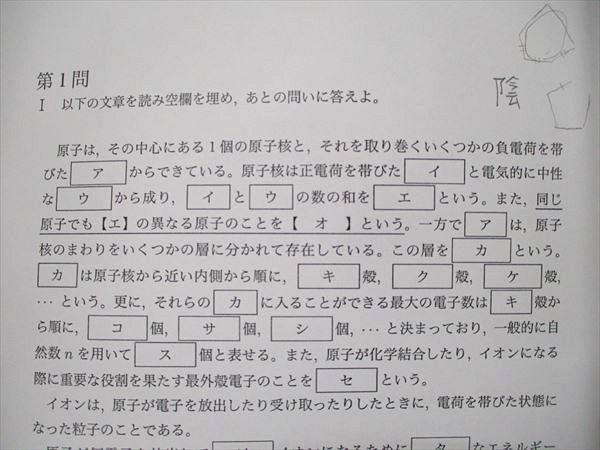 第1問
I 以下の文章を読み空欄を埋め，あとの問いに答えよ。
陰
原子は，その中心にある1個の原子核と，それを取り巻くいくつかの負電荷を帯
びた ア からできている。原子核は正電荷を帯びた イ と電気的に中性
な ウ から成り， イ と ウ の数の和を エ という。また，同じ
原子でも【エ】の異なる原子のことを【 オ 】という。一方で ア は，原子
核のまわりをいくつかの層に分かれて存在している。この層を カ という。
カ は原子核から近い内側から順に， キ 殻， ク 殻， ケ 殻，
… という。更に，それらの カ に入ることができる最大の電子数は キ 殻か
ら順に， コ 個， サ 個， シ 個，… と決まっており，一般的に自
然数 n を用いて ス 個と表せる。また，原子が化学結合したり，イオンになる
際に重要な役割を果たす最外殻電子のことを セ という。
イオンは，原子が電子を放出したり受け取ったりしたときに，電荷を帯びた状態に
なった粒子のことである。
イオンになるために タ なエネルギー